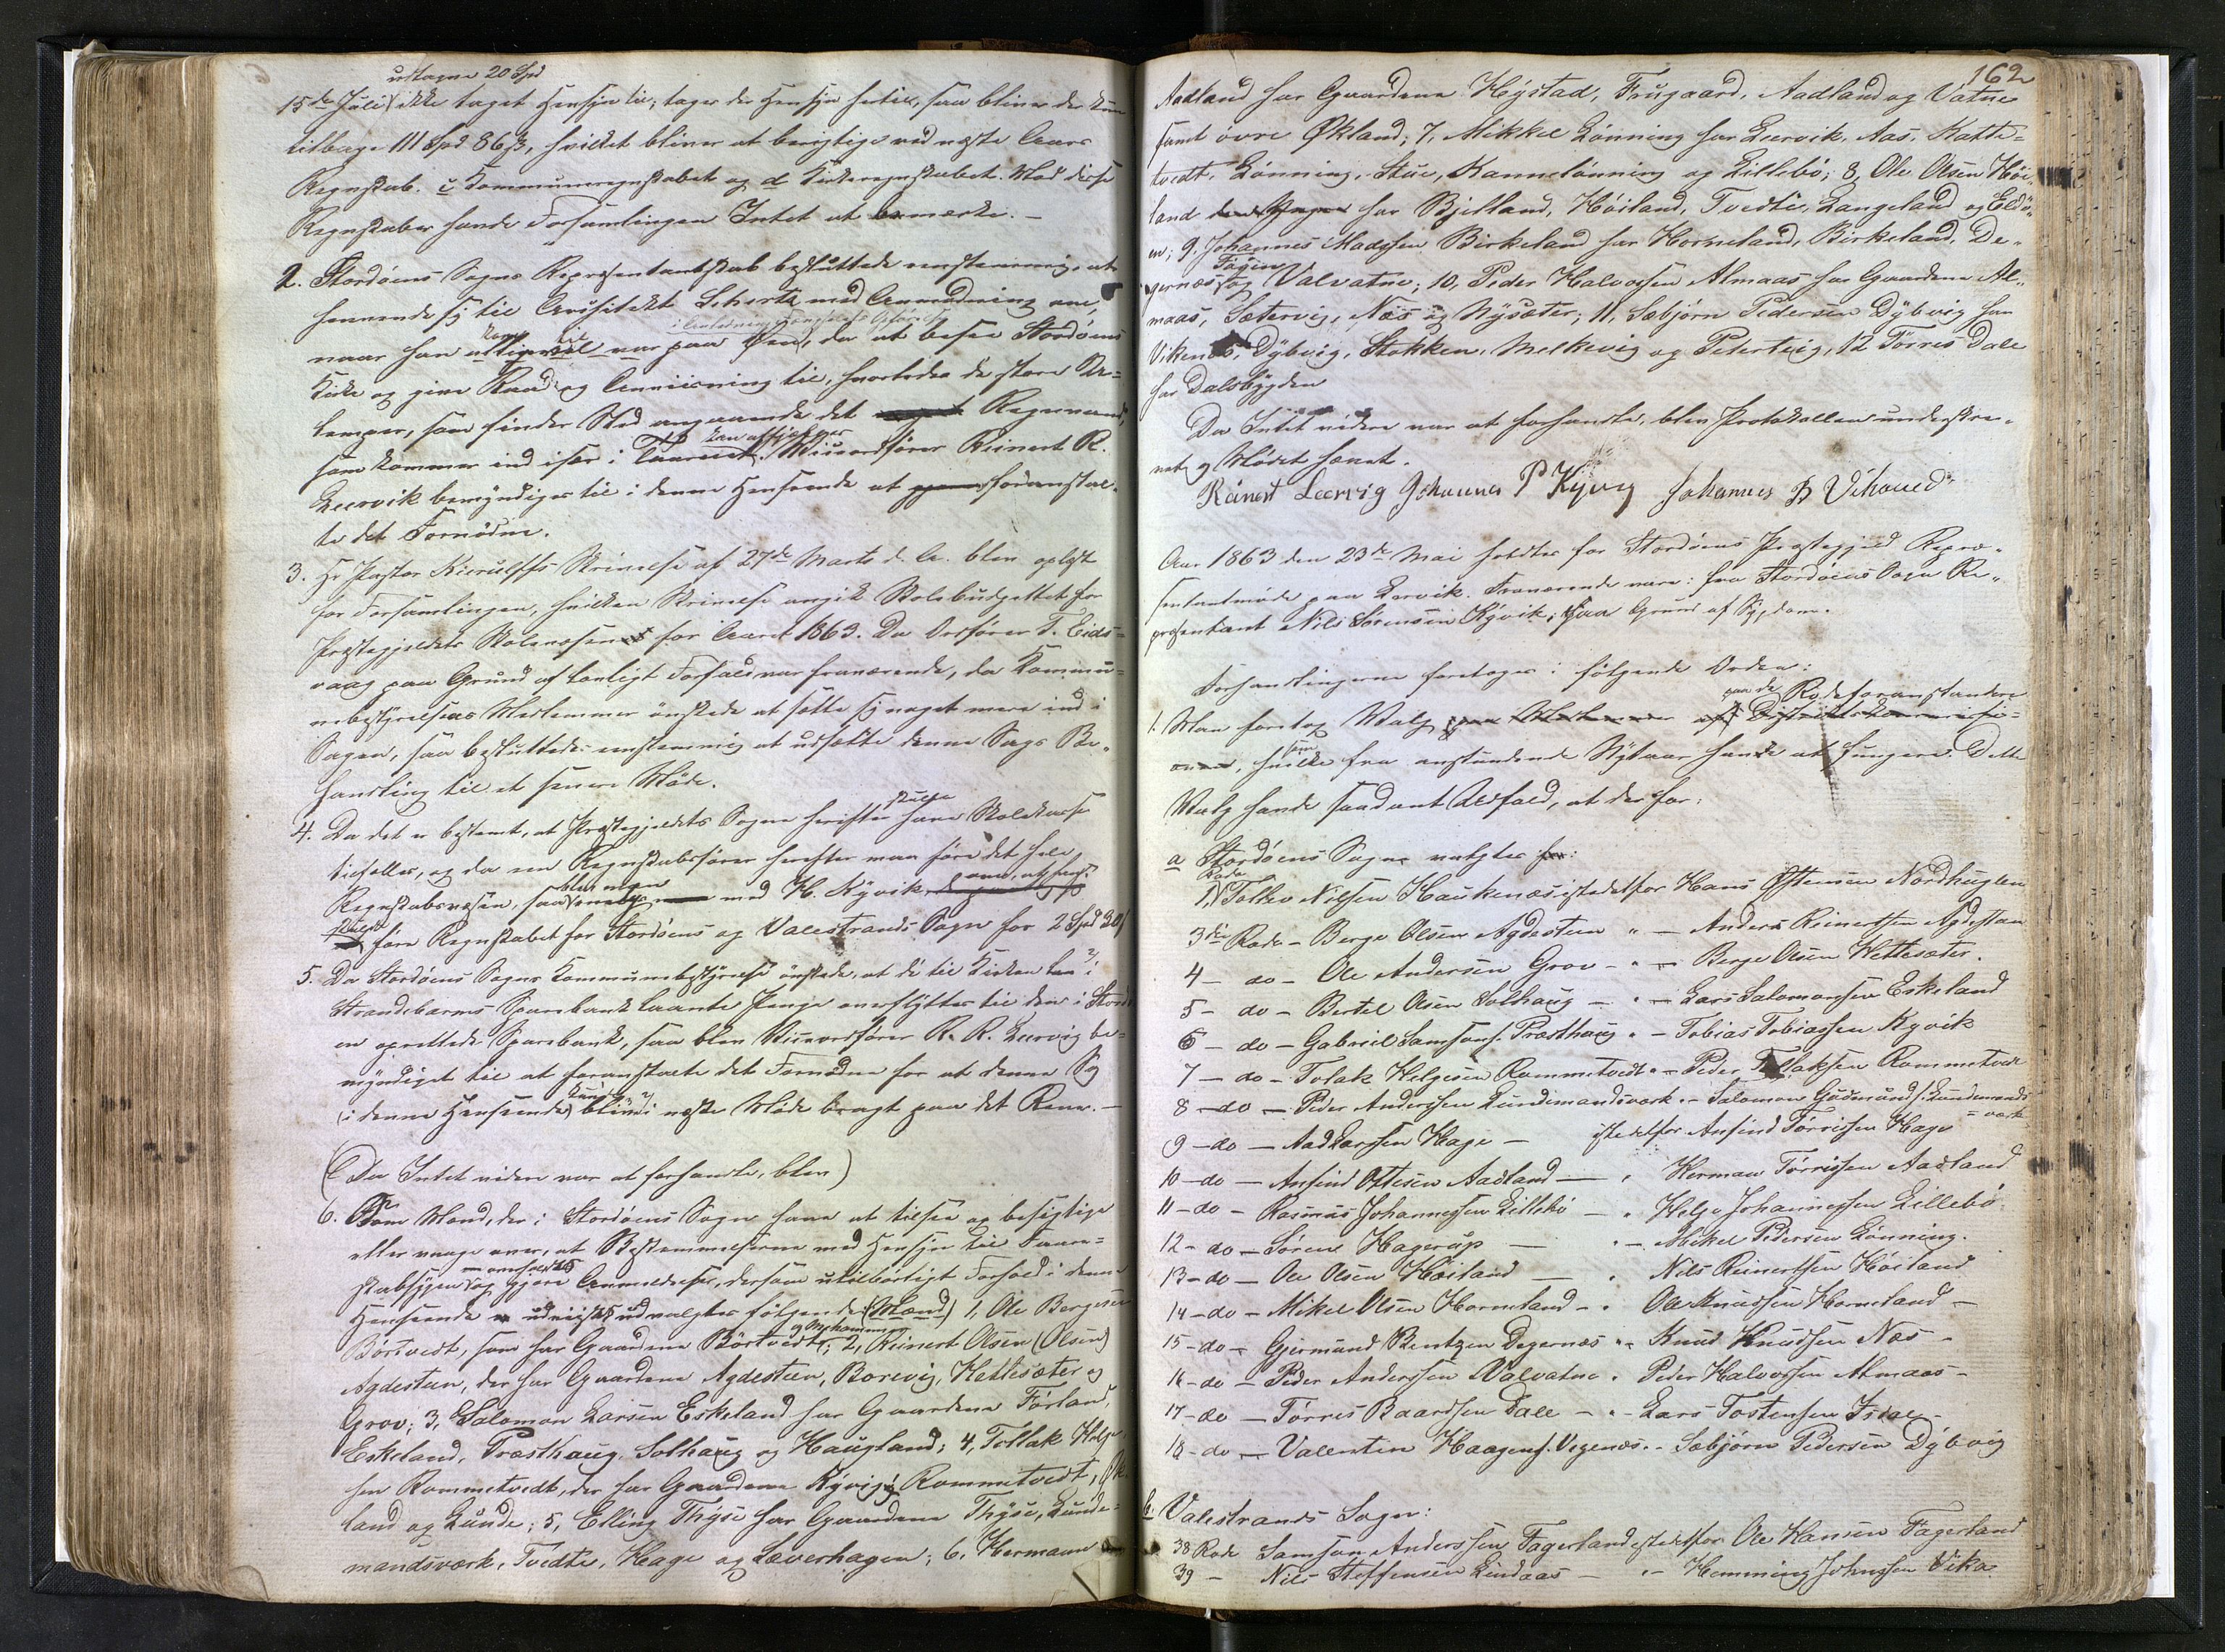 udtagne 20 Spd
15de Juli ikke taget Hensyn til; tages der Hensyn hertil, saa bliver der kun
tilbage 111 Spd 86 ß, hvilket bliver at berigtige ved næste Aars
Regnskab. c Kommuneregnskabet og d Kirkeregnskabet. Mod disse
Regnskaber havde Forsamlingen Intet at bemærke. –
2. Stordöens Sogns Repræsentantskab besluttede eenstemmig, at
henvende sig til Architekt Schertz med Anmodning om,
naar han
paa Öen, da at besee Stordöens
Kirke og give Raad og Anviisning til, hvorledes de store Ulemper,
som finder Sted angaaende det Regnvand,
som kommer ind især i Taarnet kan afhjælpes. Viceordförer Reinert R.
Leervik bemyndiges til i denne Henseende at foranstalte
det Fornödne.
3. Hr Pastor Kierulffs Skrivelse af 27de Marts d. A. blev oplæst
for Forsamlingen, hvilken Skrivelse angik Skolebudgettet for
Præstegjeldets Skolevæsen for Aaret 1863. Da Ordförer T. Eidsvaag
paa Grund af lovligt Forfald var fraværende, da Kommunebestyrelsens
Medlemmer önskede at sætte sig noget mere ind i
Sagen, saa besluttedes eenstemmig at udsætte denne Sags Behandling
til et senere Möde.
4. Da det er bestemt, at Præstegjeldets Sogne herefter skulle have Skolekasse
tilfælles, og da een Regnskabsförer herefter maa före det hele
Regnskabsvæsen, saa blev man med H. Kyvik
före Regnskabet for Stordöens og Valestrands Sogn for 2 Spd
5. Da Stordöens Sogns Kommunebestyrelse önskede, at de til Kirken i
Strandebarms Sparebank laante Penge overflyttes til den i Stordöen
oprettede Sparebank, saa blev Viceordförer R. R. Leervig bemyndiget
til at foranstalte det Fornödne for at denne Sag
(i denne Henseende) kunde blive i næste Möde bragt paa det Rene. –
(Da Intet videre var at forhandle, blev)
6. Som Mænd, der i Stordöens Sogn have at tilsee og besigtige
eller vaage over, at Bestemmelserne med Hensyn til Faareskabsygen
overholdes og gjöre Anmeldelse, dersom utilbörligt Forhold i denne
Henseende udvalgtes fölgende (Mænd) 1, Ole Bergesen
Börtvedt, som har Gaardene Börtvedt og Nyhammer; 2, Reinert Olsen (Olsen)
Agdesteen, der har Gaardene Agdesteen, Borevig, Hettesæter og
Grov; 3, Salomon Larsen Eskeland har Gaardene Förland,
Eskeland, Præsthaug, Solhaug og Haugland; 4, Tollak Helgesen
Rommetvedt, der har Gaardene Kyvig, Rommetvedt, Økland
og Lunde; 5, Elling Thyse har Gaardene Thyse, Lundemandsværk,
Tvedte, Hage og Læverhagen; 6, Hermann
162
Aadland har Gaardene Hystad, Frugaard, Aadland og Vatne
samt övre Økland; 7, Mikkel Lönning har Leervik, Aas, Kattetvedt,
Lönning, Stue, Kannelönning og Lillebö; 8, Ole Olsen Höiland
har Bjelland, Höiland, Tvedte, Langeland og Eldöen;
9, Johannes Madssen Birkeland har Horneland, Birkeland, Degernæs,
og Valvatne; 10, Peder Halvorsen Almaas har Gaardene Almaas,
Sætervig, Næs og Nysæter; 11, Sæbjörn Pedersen Dybvig har
Vikenæs, Dybvig, Stokken, Melkevig og Petersteig, 12 Törres Dale
har Dalsbygden
Da Intet videre var at forhandle, blev Protokollen underskrevet
og Mödet hævet.
Reinert Leervig Johannes P Kyvig Johannes
Aar 1863 den 23de Mai holdtes for Stordöens Præstegjeld Repræsentantmöde
paa Lervik. Fraværende vare: fra Stordöens Sogn Repræsentant
Nils Sörensen Kyvik, paa Grund af Sygdom.
Forhandlingerne foretoges i fölgende Orden:
1. Man foretog Valg paa de Rodeforstandere
hvilke fra anstundende Nytaar have at fungere. Dette
Valg havde saadant Udfald, at der for:
a Stordöens Sogn valgtes for:
1, Rode Tollev Nilsen Haukenæs istedetfor Hans Østensen Nordhuglen
3die Rode – Berge Olsen Agdesteen " – Anders Reinertsen Agdesteen
4 – do – Ole Andersen Grov – " – Berge Olsen Hettesæter.
5 – do – Bertel Olsen Solhaug – " – Lars Salomonsen Eskeland
6 – do – Gabriel Samsons. Præsthaug " – Tobias Tobiassen Kyvik
7 – do – Tolak Helgesen Rommetvedt " – Peder Tollaksen Rommetvedt
8 – do – Peder Anderssen Lundemandsværk " – Salomon Gudmunds. Lundemandsværk
9 – do – Aad Larssen Hage – istedetfor Anfind Törrissen Hage
10 – do – Anfind Ottesen Aadland – " Herman Törrissen Aadland
11 – do – Rasmus Johannessen Lillebö – " Helge Johannessen Lillebö
12 – do – Sören Hagerup – " – Mikel Pedersen Lönning.
13 – do – Ole Olsen Höiland – " Nils Reinertsen Höiland
14 – do – Mikel Olsen Horneland – " Ole Knudsen Horneland –
15 – do – Gjermund Bentzen Degernæs " – Knud Knudsen Næs –
16 – do – Peder Anderssen Valvatne " Peder Halvorsen Almaas –
17 – do – Törres Baardsen Dale – " – Lars Tostensen Isdal –
18 – do – Valentin Haagens. Vegenæs " – Sæbjörn Pedersen Dybvig
b. Valestrands Sogn:
38 Rode Samson Anderssen Fagerland istedetfor Ole Hansen Fagerland
39 – Nils Steffensen Lindaas – " – Hemming Johnssen Vika